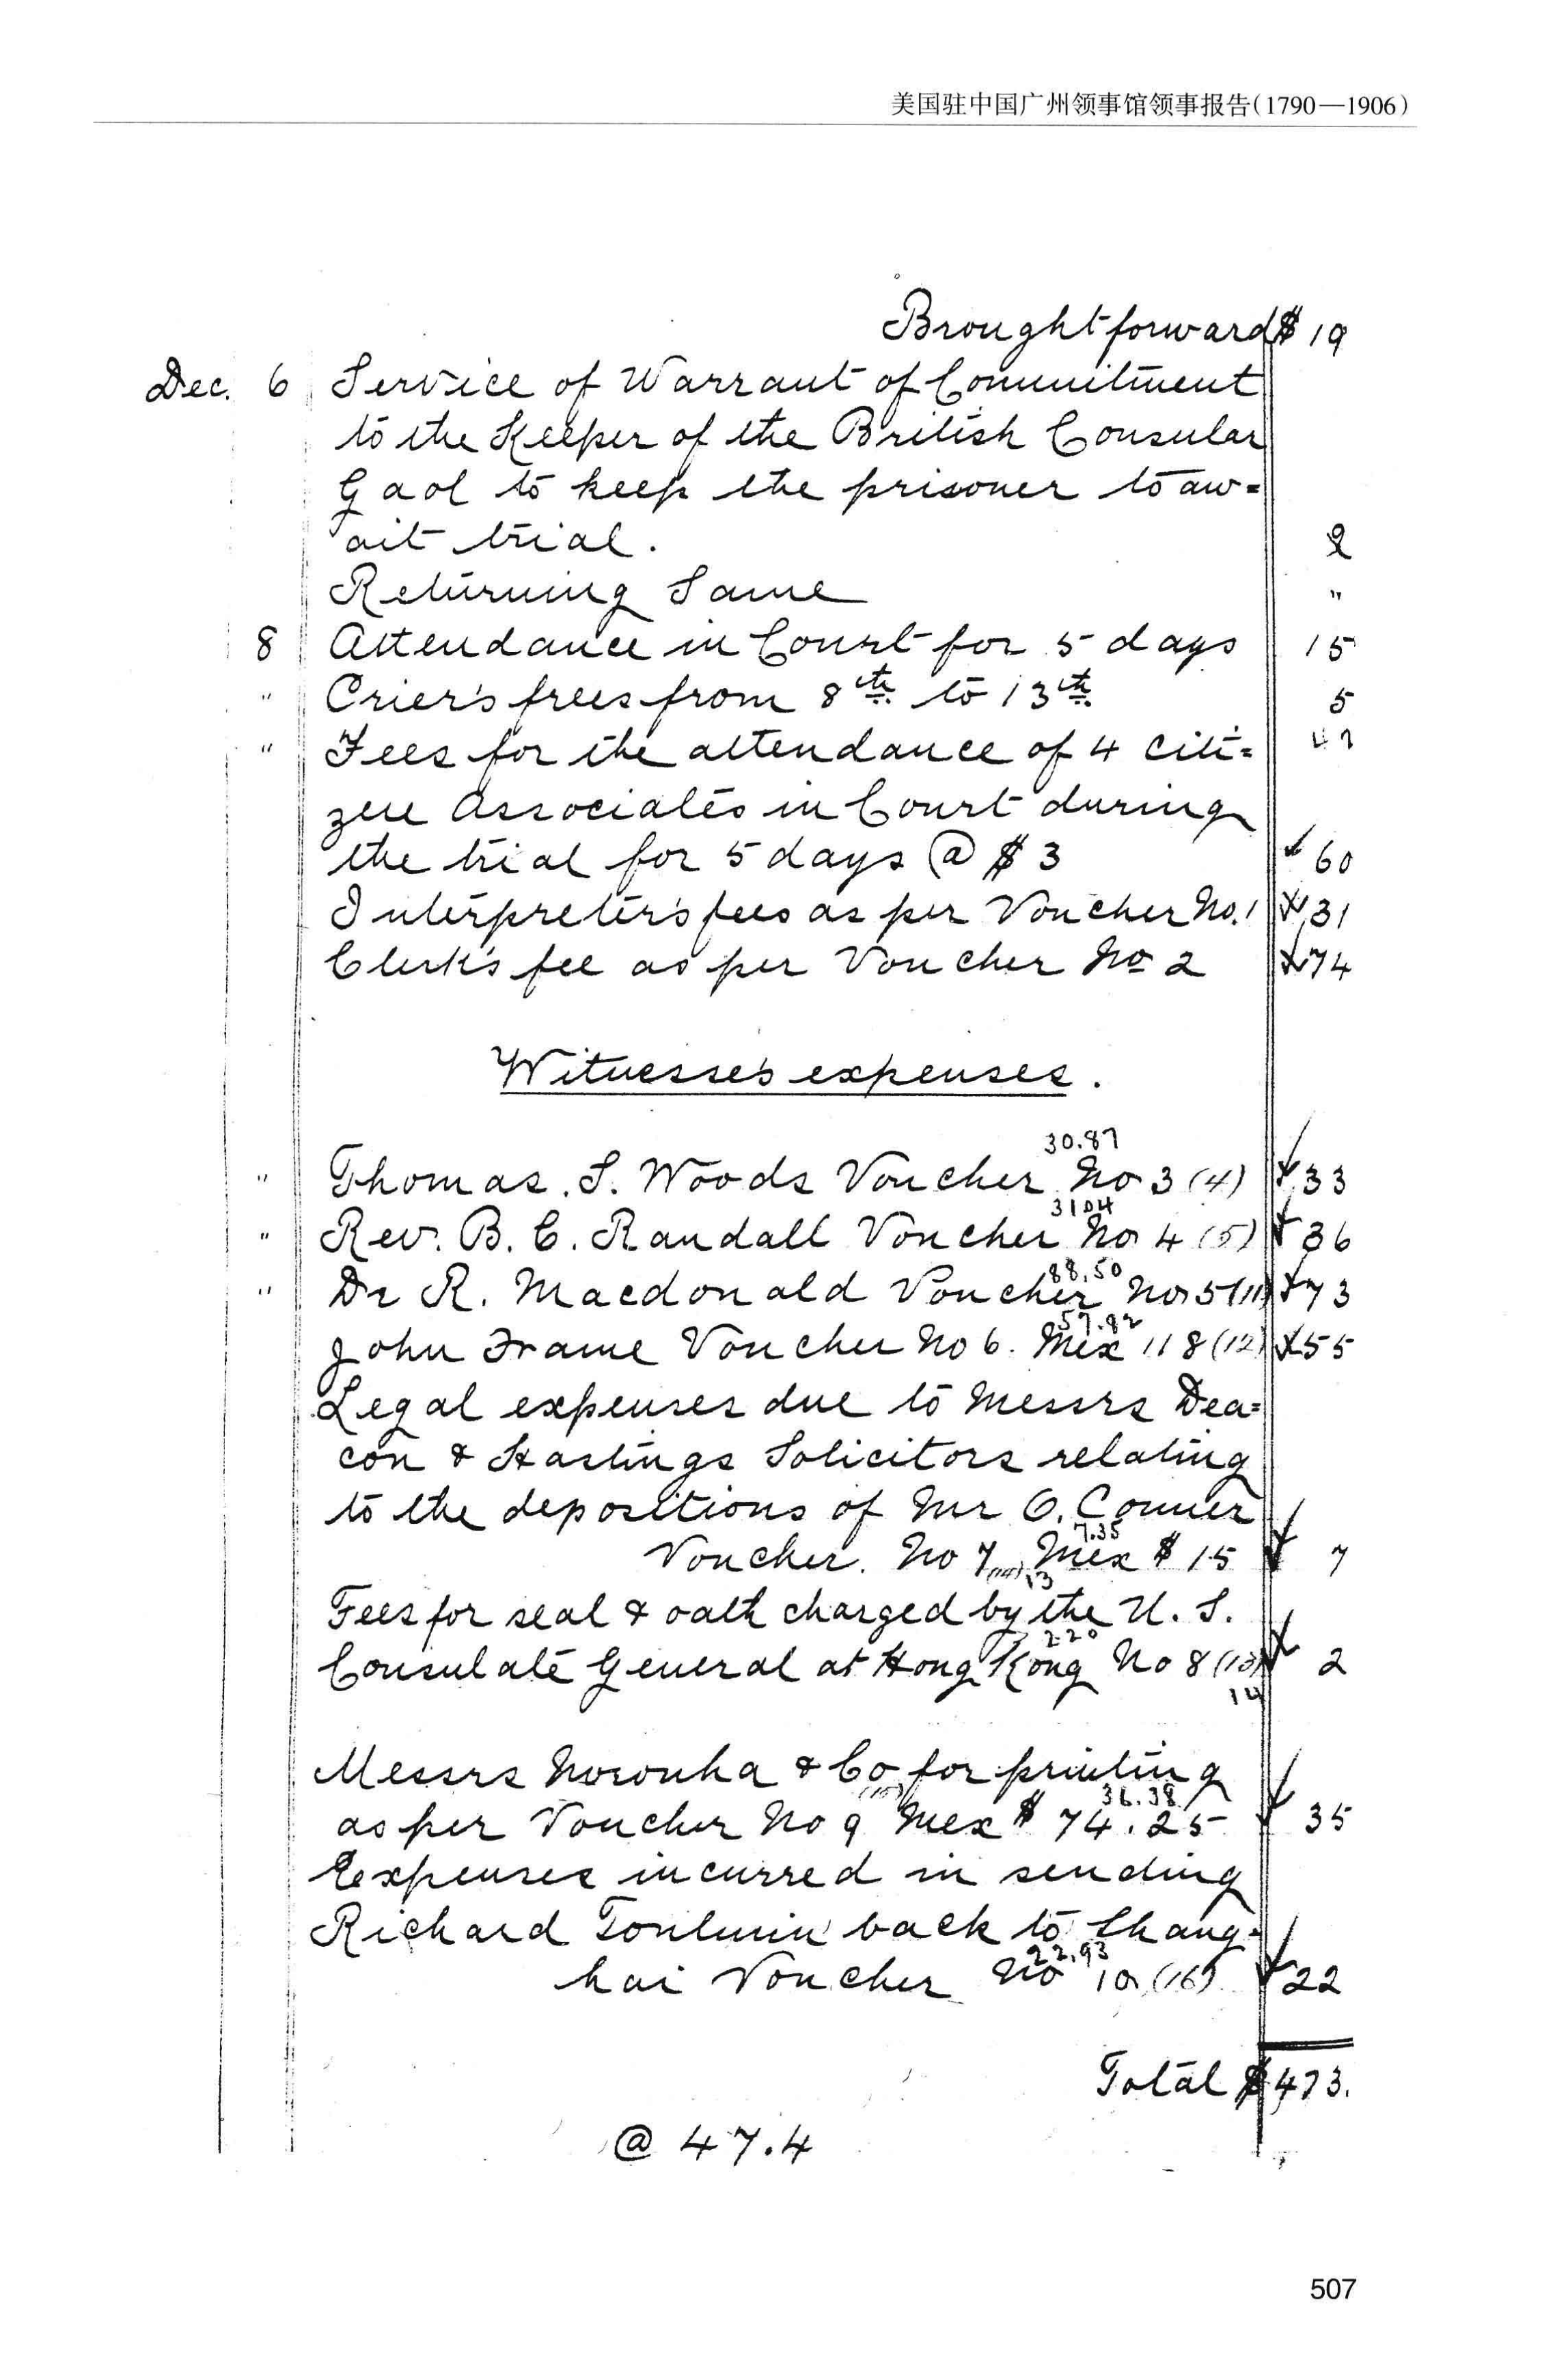 美国驻中国广州领事馆领事报告(1790—1906)
Brought forward $ 19
Dec. 6 Service of Warrant of Commitment
to the Keeper of the British Consular
Gaol to keep the prisoner to aw=
ait trial. 2
Returning Same "
8 Attendance in Court for 5 days 15
" Crier's frees from 8th to 13th 5
" Fees for the attendance of 4 citi=
zen Associates in Court during
the trial for 5 days @ $ 3 60
Interpreter's fees as per Voucher No. 1 31
Clerk's fee as per Voucher No 2 74
Witnesses expenses.
30.87
" Thomas. S. Woods Voucher No 3 (4) 33
31 04
" Rev. B. C. Randall Voucher No 4 (5) 36
88.50
" Dr R. Macdonald Voucher No 5 (11) 73
57.82
John Frame Voucher No 6. Mex 118 (12) 55
Legal expenses due to Messrs Dea=
con & Hastings Solicitors relating
to the depositions of Mr O. Conner
7.35
Voucher. No 7 Mex $ 15 7
13
Fees for seal & oath charged by the U. S.
2.20
Consulate General at Hong Kong No 8 (13) 2
14
Messrs Noronha & Co for printing
(15) 36.38
as per Voucher No 9 Mex $ 74.25 35
Expenses incurred in sending
Richard Toulmin back to Shang-
22.93
hai Voucher No 10 (16) 22
Total $ 473.
@ 47.4
507